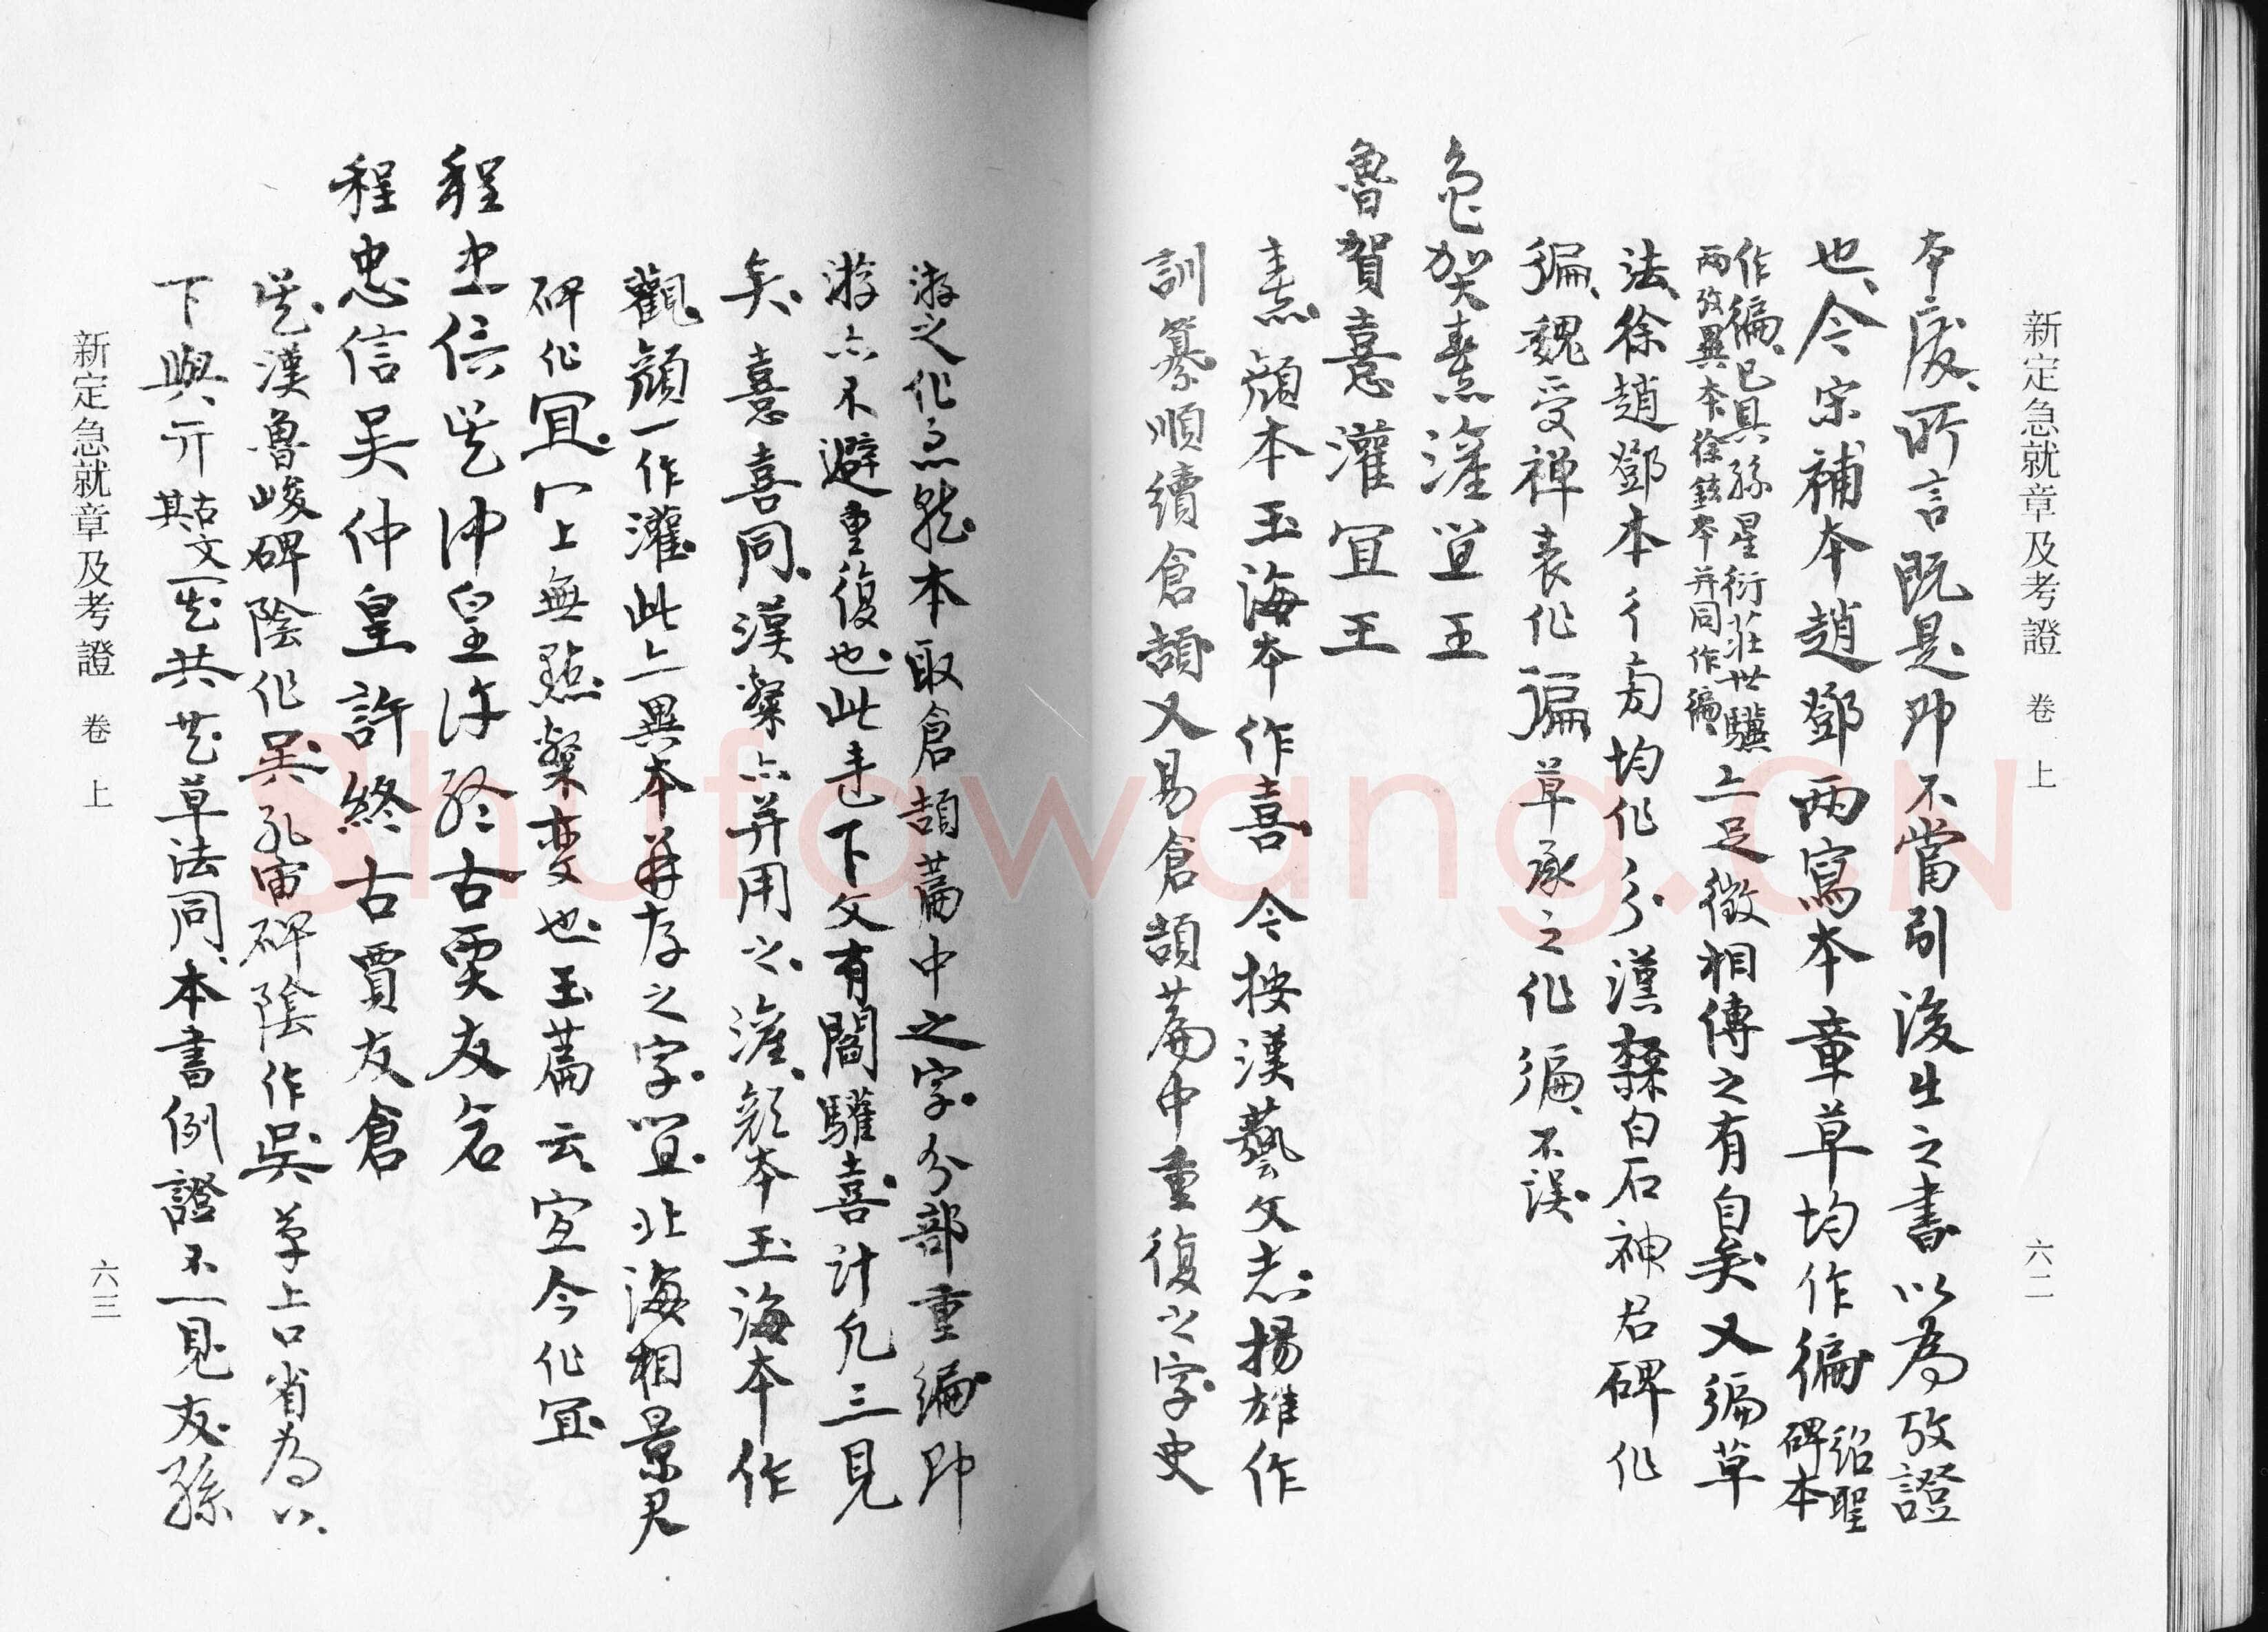 新定急就章及考證 卷上 六二
本廢、所言既是、即不當引後生之書以為攷證
也、今宗補本趙鄧兩寫本章草均作徧紹聖碑本
作徧、已具孫星衍莊世驥兩攷異本徐鉉本并同作徧、上足徵相傳之有自矣又徧草
法、徐趙鄧本彳旁均作亻漢隸白石神君碑作
徧、魏受禪表作徧草承之作徧、不誤
魯賀憙灌宜王
魯賀憙灌宜王
憙、顏本玉海本作喜、今按漢藝文志揚雄作
訓纂順續倉頡又易倉頡篇中重復之字史
游之作急就本取倉頡篇中之字分部重編即
游亦不避重復也此走下文有閻驩喜計凡三見
矣、憙喜同、漢槃亦并用之、灌、顏本玉海本作
觀、顏一作灌、此上異本并存之字、宜、北海相景君
碑作宜、冖上無點槃變也、玉篇云、宜今作宜
程忠信吳仲皇許終古賈友倉
程忠信吳仲皇許終古賈友倉
吳、漢魯峻碑陰作吳、孔宙碑陰作吳、草上口省為八、
下與亓古文其一先共共草法同、本書例證不一見、友、孫
新定急就章及考證 卷上 六三
Shufawang.CN